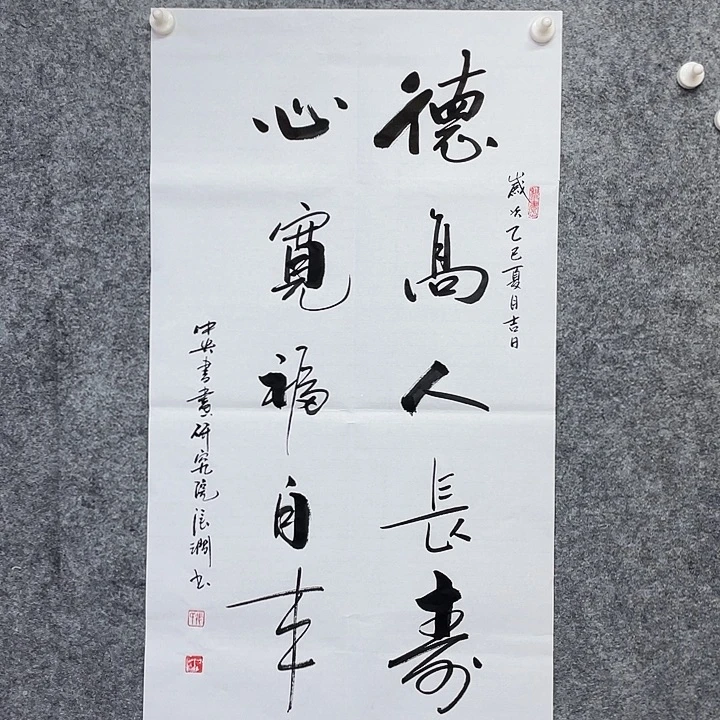 歲次乙巳夏月吉日
德高人長壽
心寬福自来
中央書畫研究院
书